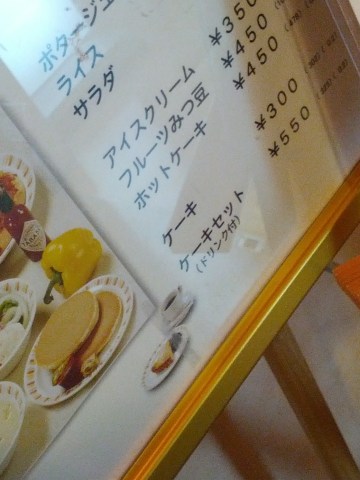 ポタージュ
ライス
サラダ
アイスクリーム ¥350
フルーツみつ豆 ¥450
ホットケーキ ¥450
ケーキ ¥300
ケーキセット ¥550
(ドリンク付)